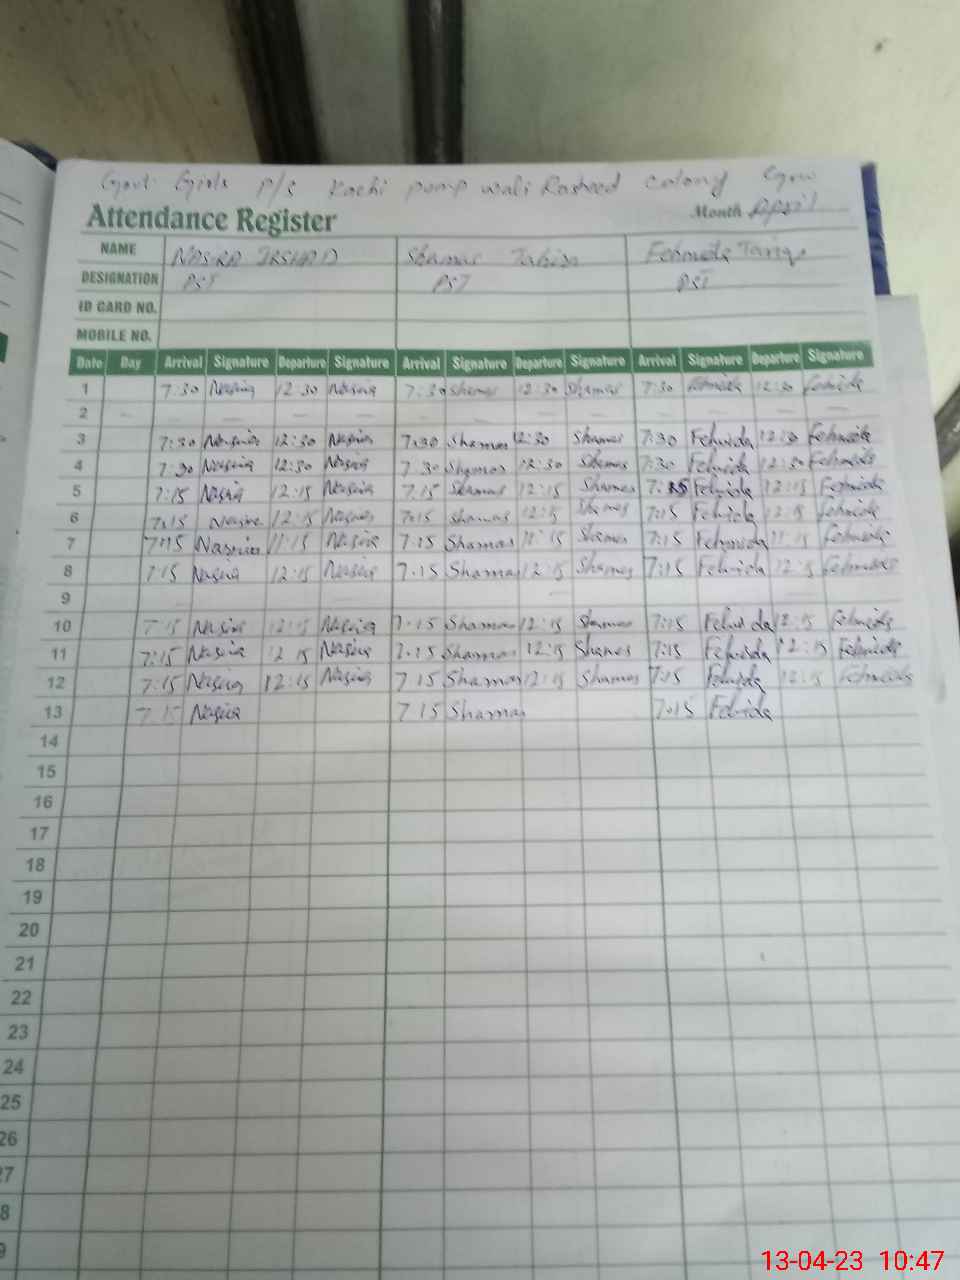 Govt Girls P/S Kachi pump wali Rasheed colony
Attendance Register Month April
NAME NASIRA IRSHAD Shamas Fehmida Tariq
DESIGNATION PST PST PST
ID CARD NO.
MOBILE NO.
Date Day Arrival Signature Departure Signature Arrival Signature Departure Signature Arrival Signature Departure Signature
1 7:30 Nasira 12:30 Nasira 7:30 Shamas 12:30 Shamas 7:30 Fehmida 12:30 Fehmida
2
3 7:30 Nasira 12:30 Nasira 7:30 Shamas 12:30 Shamas 7:30 Fehmida 12:30 Fehmida
4 7:30 Nasira 12:30 Nasira 7:30 Shamas 12:30 Shamas 7:30 Fehmida 12:30 Fehmida
5 7:15 Nasira 12:15 Nasira 7:15 Shamas 12:15 Shamas 7:15 Fehmida 12:15 Fehmida
6 7:15 Nasira 12:15 Nasira 7:15 Shamas 12:15 Shamas 7:15 Fehmida 12:15 Fehmida
7 7:15 Nasira 11:15 Nasira 7:15 Shamas 11:15 Shamas 7:15 Fehmida 11:15 Fehmida
8 7:15 Nasira 12:15 Nasira 7:15 Shamas 12:15 Shamas 7:15 Fehmida 12:15 Fehmida
9
10 7:15 Nasira 12:15 Nasira 7:15 Shamas 12:15 Shamas 7:15 Fehmida 12:15 Fehmida
11 7:15 Nasira 12:15 Nasira 7:15 Shamas 12:15 Shamas 7:15 Fehmida 12:15 Fehmida
12 7:15 Nasira 12:15 Nasira 7:15 Shamas 12:15 Shamas 7:15 Fehmida 12:15 Fehmida
13 7:15 Nasira 7:15 Shamas 7:15 Fehmida
14
15
16
17
18
19
20
21
22
23
24
25
26
27
8
9
13-04-23 10:47